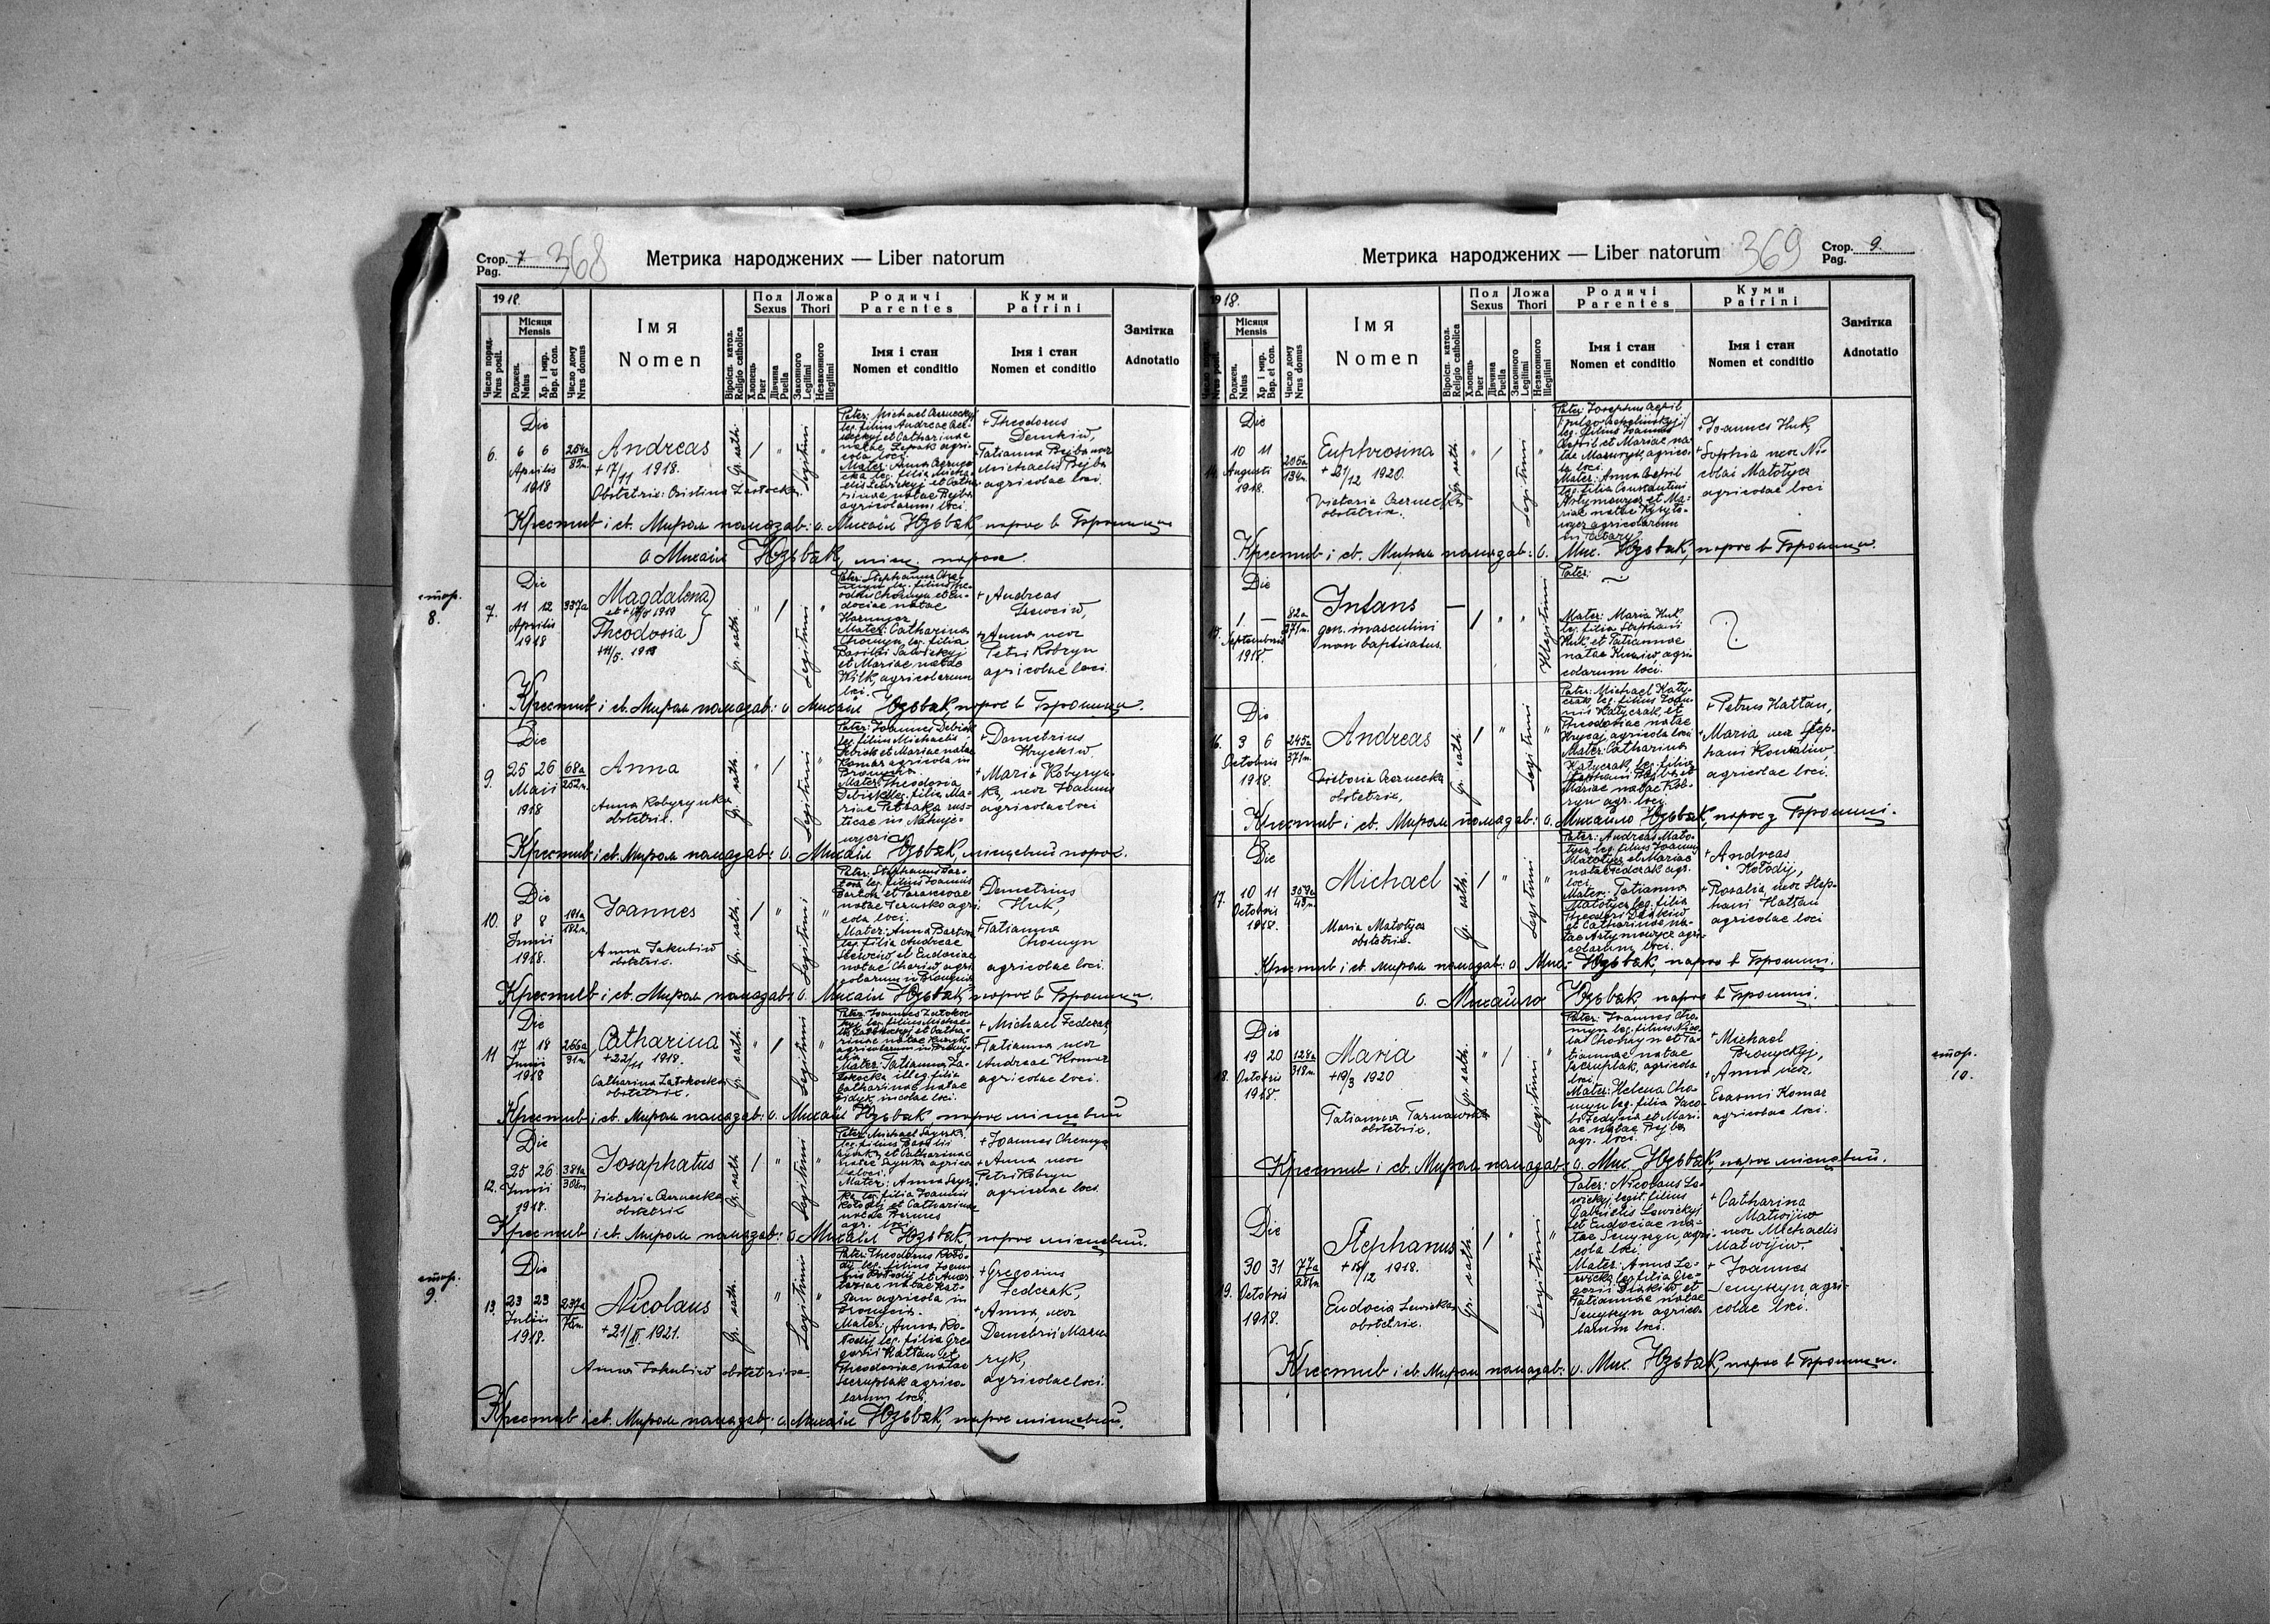 Стор. 7
Pag.
368
Метрика народжених — Liber natorum
1918.
Число поряд.
Nrus posit.
Місяця
Mensis
Роджен.
Natus
Хр. і мир.
Bap. et con.
Число дому
Nrus domus
Імя
Nomen
Віроісп. катол.
Religio catholica
Пол
Sexus
Хлопець
Puer
Дівчина
Puella
Ложа
Thori
Законного
Legitimi
Незаконного
Illegitimi
Родичі
Parentes
Імя і стан
Nomen et conditio
Куми
Patrini
Імя і стан
Nomen et conditio
Замітка
Adnotatio
6.
Die
6 6
Aprilis
1918
Andreas
+ 17/11 1918.
Obstetrix: Cristina
Gr. cath.
Legitimi
Pater: Michael Czerneckyj
leg. filius Andreae
et Catharinae
natae
agricola loci.
Mater: Anna
+ Theodorus
Demkiw,
+ Tatianna Bejba uxor
Michaelis Bejba
agricolae loci.
Крестив і св. Миром помазав: о. Михаіл Юзьвак, парох вБрониці
о Михаіл Юзьвак, міст. парох.
стор.
8.
7.
Die
11 12
Aprilis
1918
337a
Magdalena
1919
Theodosia
+11/5. 1918
Gr. cath.
Legitimi
Pater: Stephanus
Mater: Catharina
Chomyn, leg. filia
Basilii Sawickyj
et Mariae natae
Kilk, agricolarum
loci.
+ Andreas
Secwciw,
+ Anna uxor
Petri Kobryn
agricolae loci.
Крестив і св. Миром помазав: о Михаіл Юзьвак, парох в Брониці.
9.
Die
25 26
Maii
1918
68a
252n.
Anna
Anna Kobyrynka
obstetrix.
Gr. cath.
Legitimi
Pater: Joannes Debick
leg. filius Michaelis
Debick et Mariae natae
Komar agricola in
Bronycia.
Mater: Theodosia
+ Demetrius
Hryckiw
+ Maria Kobyryn-
ka, uxor Joannis
agricolae loci
Крестив і св. Миром помазав: о. Михаіл Юзьвак, місцевий парох.
10.
Die
8 8
Junii
1918.
181a
182n.
Joannes
Anna Jakubiw
obstetrix.
Gr. cath.
Legitimi
Pater: Stephanus
leg. filius Joannis
cola loci.
Mater: Anna Barton
leg. filia Andreae
et Eudociae
+ Demetrius
Huk,
+ Tatianna
Chomyn
agricolae loci.
Крестив і св. Миром помазав: о. Михаіл Юзьвак, парох в Брониці.
11
Die
17 18
Junii
1918
266a
91n.
Catharina
+ 22/11 1918.
Catharina Zatokocka
obstetrix.
Gr. cath.
Legitimi
Mater: Tatianna
illeg. filia
Catharinae natae
incolae loci.
+ Michael Fedczak,
+ Tatianna uxor
Andreae Komar
agricolae loci.
Крестив і св. Миром помазав: о. Михаіл Юзьвак парох місцевий
12.
Die
25 26
Junii
1918.
381a
308n
Josaphatus
Victoria Czernecka
obstetrix
Gr. cath
Legitimi
Pater: Michael
leg. filius Basilii
et Catharinae
Mater: Anna
leg. filia Joannis
Kołodij et Catharinae
natae
agr. loci.
+ Joannes Chomyn
+ Anna uxor
Petri Kobryn
agricolae loci.
Крестив і св. Миром помазав: о Михаіл Юзьвак, парох місцевий.
стор.
9.
13.
Die
23 23
Julii
1918.
237a
Nicolaus
+21/II. 1921.
Anna Jakubiw obstetrix.
Gr. cath.
Legitimi
Pater: Theodorus Koło-
dij leg. filius Joan-
nis Kołodij et
agricola in
Bronycia.
Mater: Anna Ko-
łodij leg. filia Gre-
gorii Hattan et
Theodosiae natae
Szeruplak agrico-
larum loci.
+ Gregorius
Fedczak,
+ Anna, uxor
Demetrii Mazu-
ryk,
agricolae loci
Крестив і св. Миром помазав: о Михаіл Юзьвак, парох місцевий.
Метрика народжених — Liber natorum
369
Стор. 9.
Pag.
1918.
Число поряд.
Nrus posit.
Місяця
Mensis
Роджен.
Natus
Хр. і мир.
Bap. et con.
Число дому
Nrus domus
Імя
Nomen
Віроісп. катол.
Religio catholica
Пол
Sexus
Хлопець
Puer
Дівчина
Puella
Ложа
Thori
Законного
Legitimi
Незаконного
Illegitimi
Родичі
Parentes
Імя і стан
Nomen et conditio
Куми
Patrini
Імя і стан
Nomen et conditio
Замітка
Adnotatio
14.
Die
10 11
Augusti
1918.
205a
134n.
Euphrosina
+ 21/12 1920.
Victoria Czernecka
obstetrix.
Gr. cath.
Legitimi
Pater: Josephus
leg. filius Joannis
et Mariae na-
tae Mazuryk, agrico-
la loci.
Mater: Anna
leg. filia Constantini
Artymowycz et Ma-
riae natae
agricolarum
in Tatary.
+ Joannes Huk,
+ Sophia uxor Ni-
colai Matołycz
agricolae loci
Крестив і св. Миром помазав: о. Мих. Юзьвак, парох в Броници.
15.
Die
1 —
Septembris
1918.
82a
371n.
Infans
gen. masculini
non baptisatus.
Illegitimi
Pater: ~
Mater: Maria Huk
leg. filia Stephani
Huk et Tatiannae
natae Kuziw agri-
colarum loci.
16.
Die
3 6
Octobris
1918.
245a
371n.
Andreas
Victoria Czernecka
obstetrix,
Gr. cath.
Legitimi
Pater: Michael Katy-
czak leg. filius Joan-
nis Katyczak, et
Theodosiae natae
Hrycaj agricola loci
Mater: Catharina
Katyczak, leg. filia
Stephani Bejba et
Mariae natae Kob-
ryn agr. loci.
+ Petrus Hattan,
+ Maria uxor Step-
hani Kowaliw,
agricolae loci.
Крестив і св. Миром помазав: о. Михайло Юзьвак, парох з Брониці.
17.
Die
10 11
Octobris
1918.
307a
43n.
Michael
Maria Matołycz
obstetrix.
Gr. cath.
Legitimi
Pater: Andreas Mato-
łycz leg. filius Joannis
Matołycz et Mariae
natae Fedczak agr.
loci.
Mater: Tatianna
Matołycz leg. filia
Theodori Diakiw
et Catharinae na-
tae Artymowycz agri-
colarum loci.
+ Andreas
Kołodij,
+ Rosalia uxor Step-
hani Hattan
agricolae loci
Крестив і св. Миром помазав: о Мих. Юзьвак, парох в Брониці.
о. Михайло Юзьвак, парох в Брониці.
стор.
10.
18.
Die
19 20
Octobris
1918.
128a
318n.
Maria
+19/3 1920
Tatianna Tarnawska
obstetrix,
Gr. cath.
Legitimi
Pater: Joannes Cho-
myn leg. filius Nico-
lai Chomyn et Ta-
tiannae natae
Szeruplak, agricola
loci.
Mater: Helena Cho-
myn leg. filia Jaco-
bi Fedyna et Mari-
ae natae Bejba
agr. loci.
+ Michael
Bronyckyj,
+ Anna uxor
Erasmi Komar
agricolae loci.
Крестив і св. Миром помазав: о. Мих. Юзьвак, парох місцевий.
19.
Die
30 31
Octobris
1918.
77a
281n.
Stephanus
+ 15/12 1918.
Eudocia Lewicka
obstetrix.
Gr. cath.
Legitimi
Pater: Nicolaus Le-
wickyj legit. filius
Gabrielis Lewickyj
et Eudociae na-
tae Senyszyn, agri-
cola loci.
Mater: Anna Le-
wicka leg. filia Gre-
gorii Diakiw et
Tatiannae natae
Senyszyn agrico-
larum loci.
+ Catharina
Matwijiw
uxor Michaelis
Matwijiw.
+ Joannes
Senyszyn agri-
colae loci.
Крестив і св. Миром помазав: о. Мих. Юзьвак, парох в Брониці.